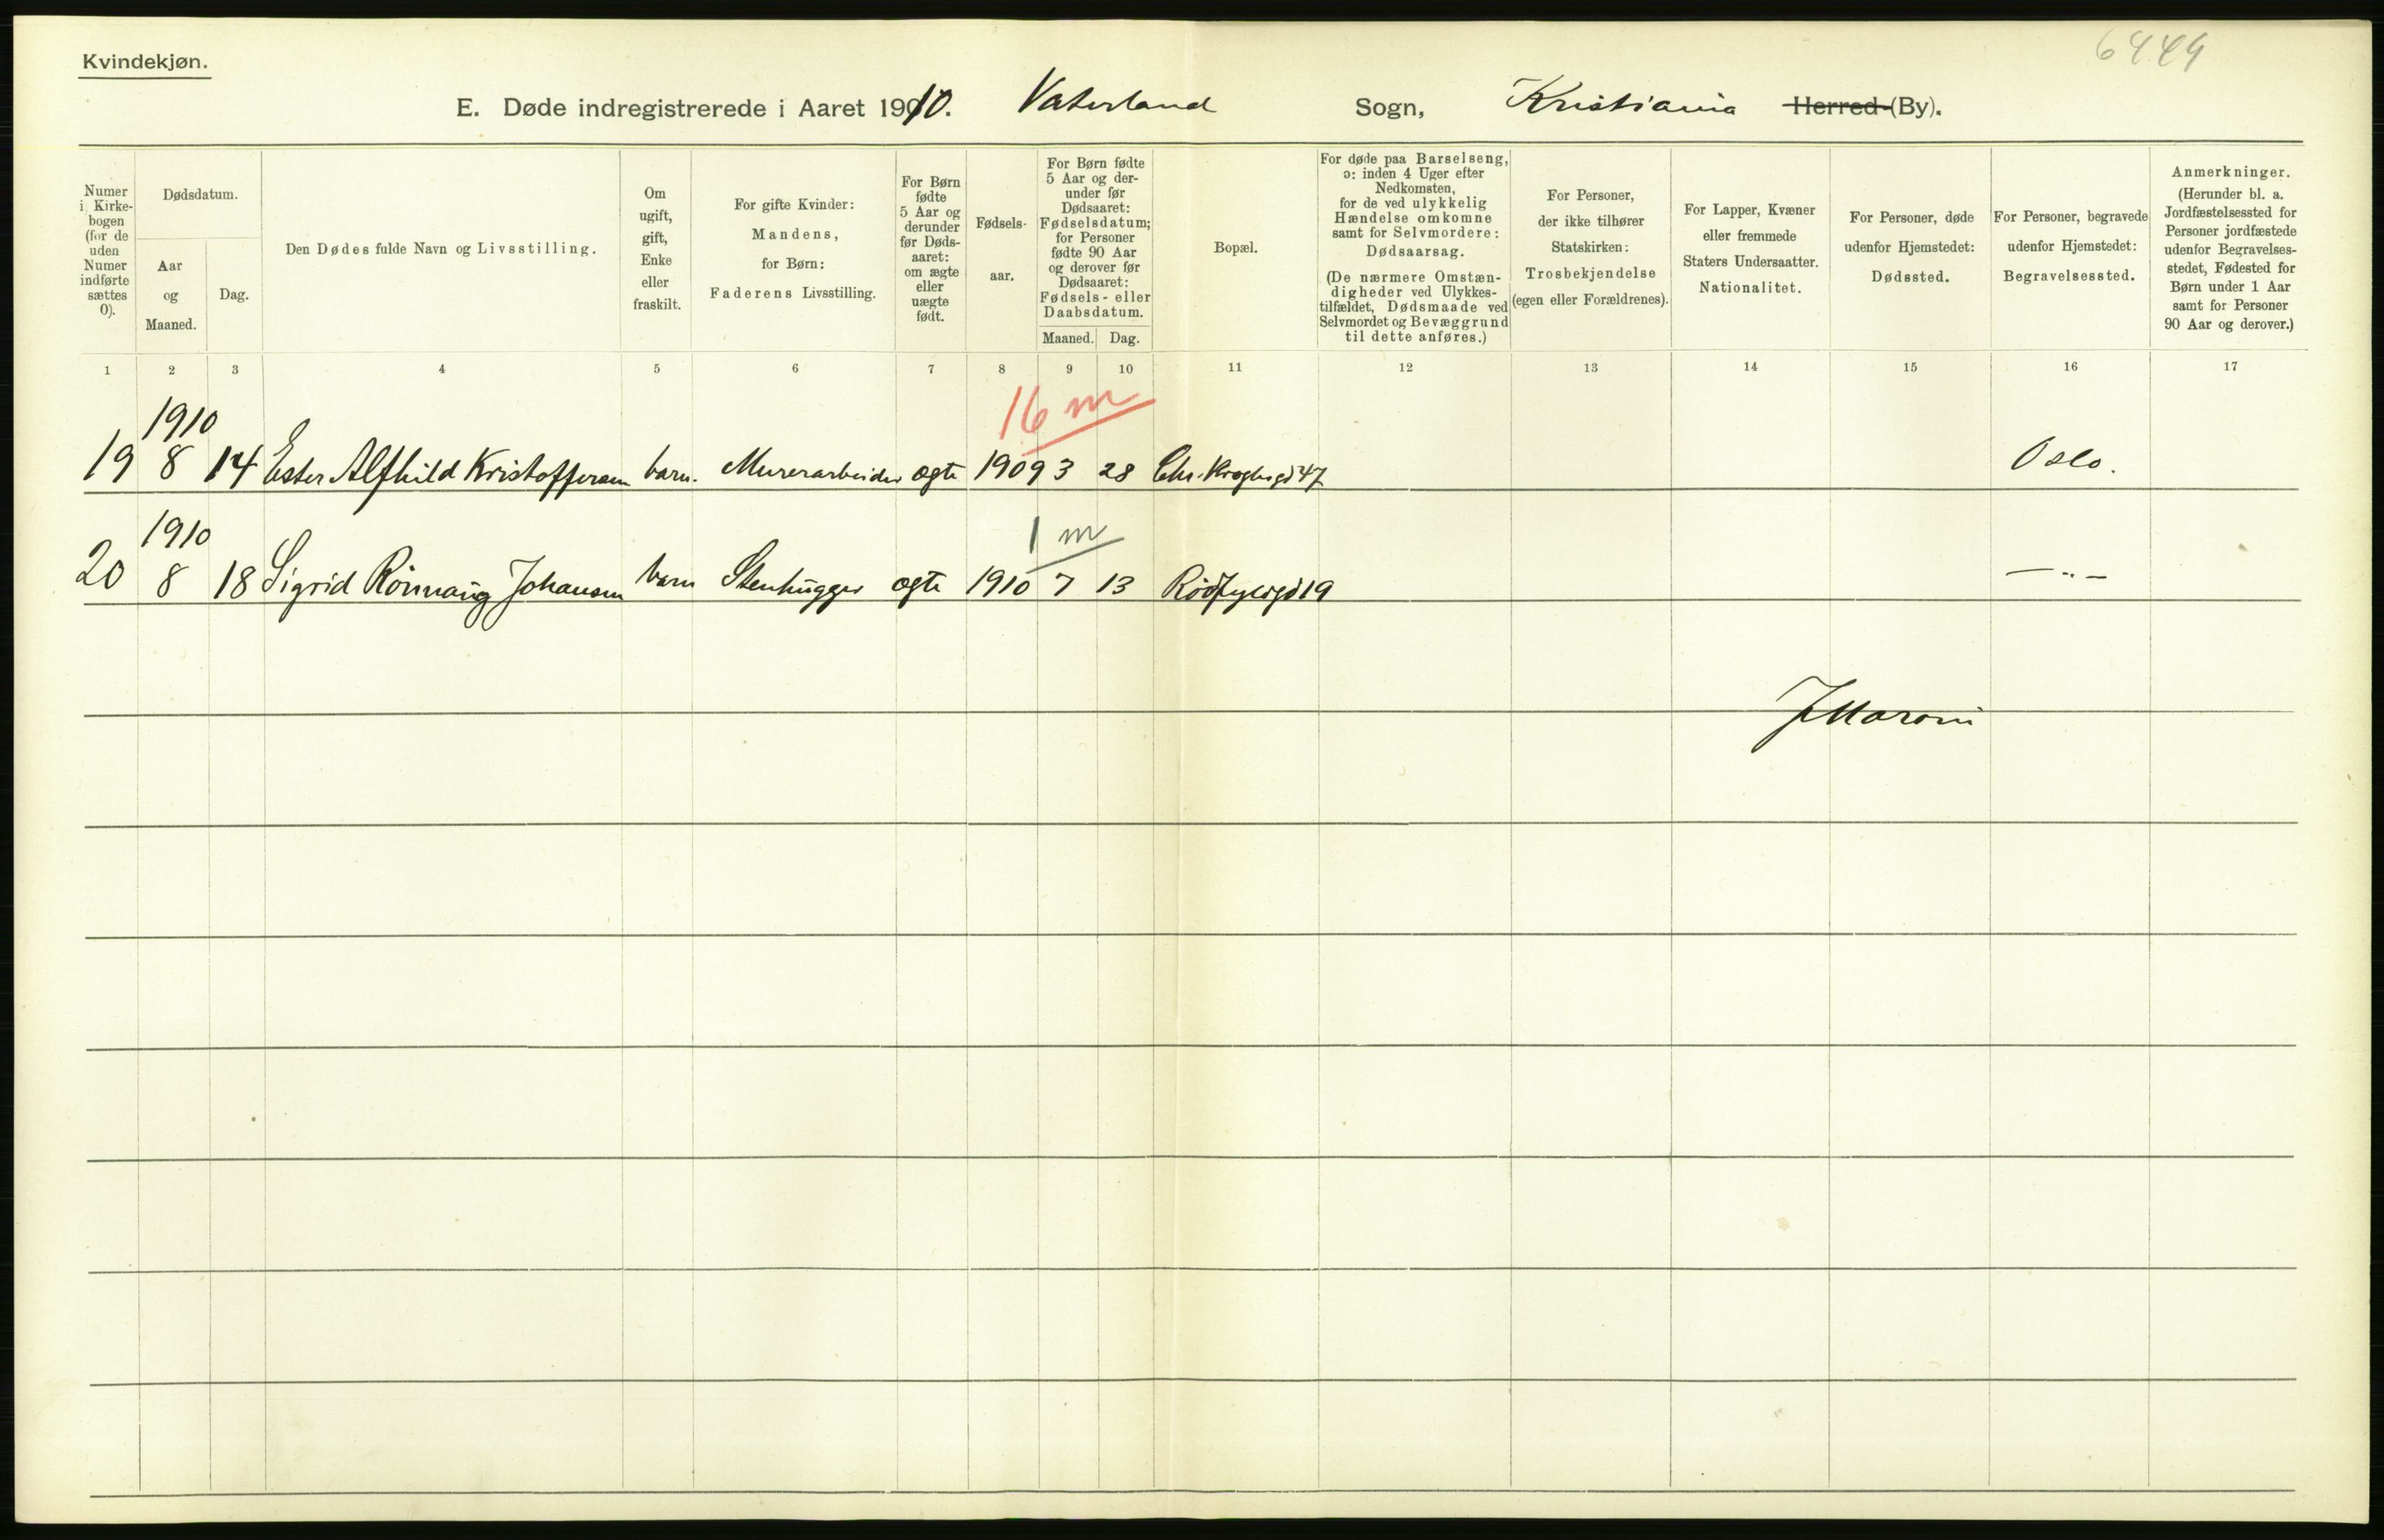 6444
Kvindekjøn.
E. Døde indregistrerede i Aaret 1910. Vaterland Sogn, Kristiania Herred (By).
Numer i Kirkebogen (for de uden Numer indførte sættes 0).
Dødsdatum.
Aar og Maaned.
Dag.
Den Dødes fulde Navn og Livsstilling.
Om ugift, gift, Enke eller fraskilt.
For gifte Kvinder: Mandens, for Børn: Faderens Livsstilling.
For Børn fødte 5 Aar og derunder før Dødsaaret: om ægte eller uægte født.
Fødselsaar.
For Børn fødte 5 Aar og derunder før Dødsaaret: Fødselsdatum; for Personer fødte 90 Aar og derover før Dødsaaret: Fødsels- eller Daabsdatum.
Maaned. Dag.
Bopæl.
For døde paa Barselseng, ɔ: inden 4 Uger efter Nedkomsten, for de ved ulykkelig Hændelse omkomne samt for Selvmordere: Dødsaarsag. (De nærmere Omstændigheder ved Ulykkestilfældet, Dødsmaade ved Selvmordet og Bevæggrund til dette anføres.)
For Personer, der ikke tilhører Statskirken: Trosbekjendelse (egen eller Forældrenes).
For Lapper, Kvæner eller fremmede Staters Undersaatter. Nationalitet.
For Personer, døde udenfor Hjemstedet: Dødssted.
For Personer, begravede udenfor Hjemstedet: Begravelsessted.
Anmerkninger. (Herunder bl. a. Jordfæstelsessted for Personer jordfæstede udenfor Begravelsesstedet, Fødested for Børn under 1 Aar samt for Personer 90 Aar og derover.)
1 2 3 4 5 6 7 8 9 10 11 12 13 14 15 16 17
1910 16 m
19 8 14 Ester Alfhild Kristoffersen barn. Murerarbeider ægte 1909 3 28 Chr. Kroghsgd 47 Oslo.
1910 1 m
20 8 18 Sigrid Rönnaug Johansen barn Stenhugger ægte 1910 7 13 Rødfyldsgd 19 — " —